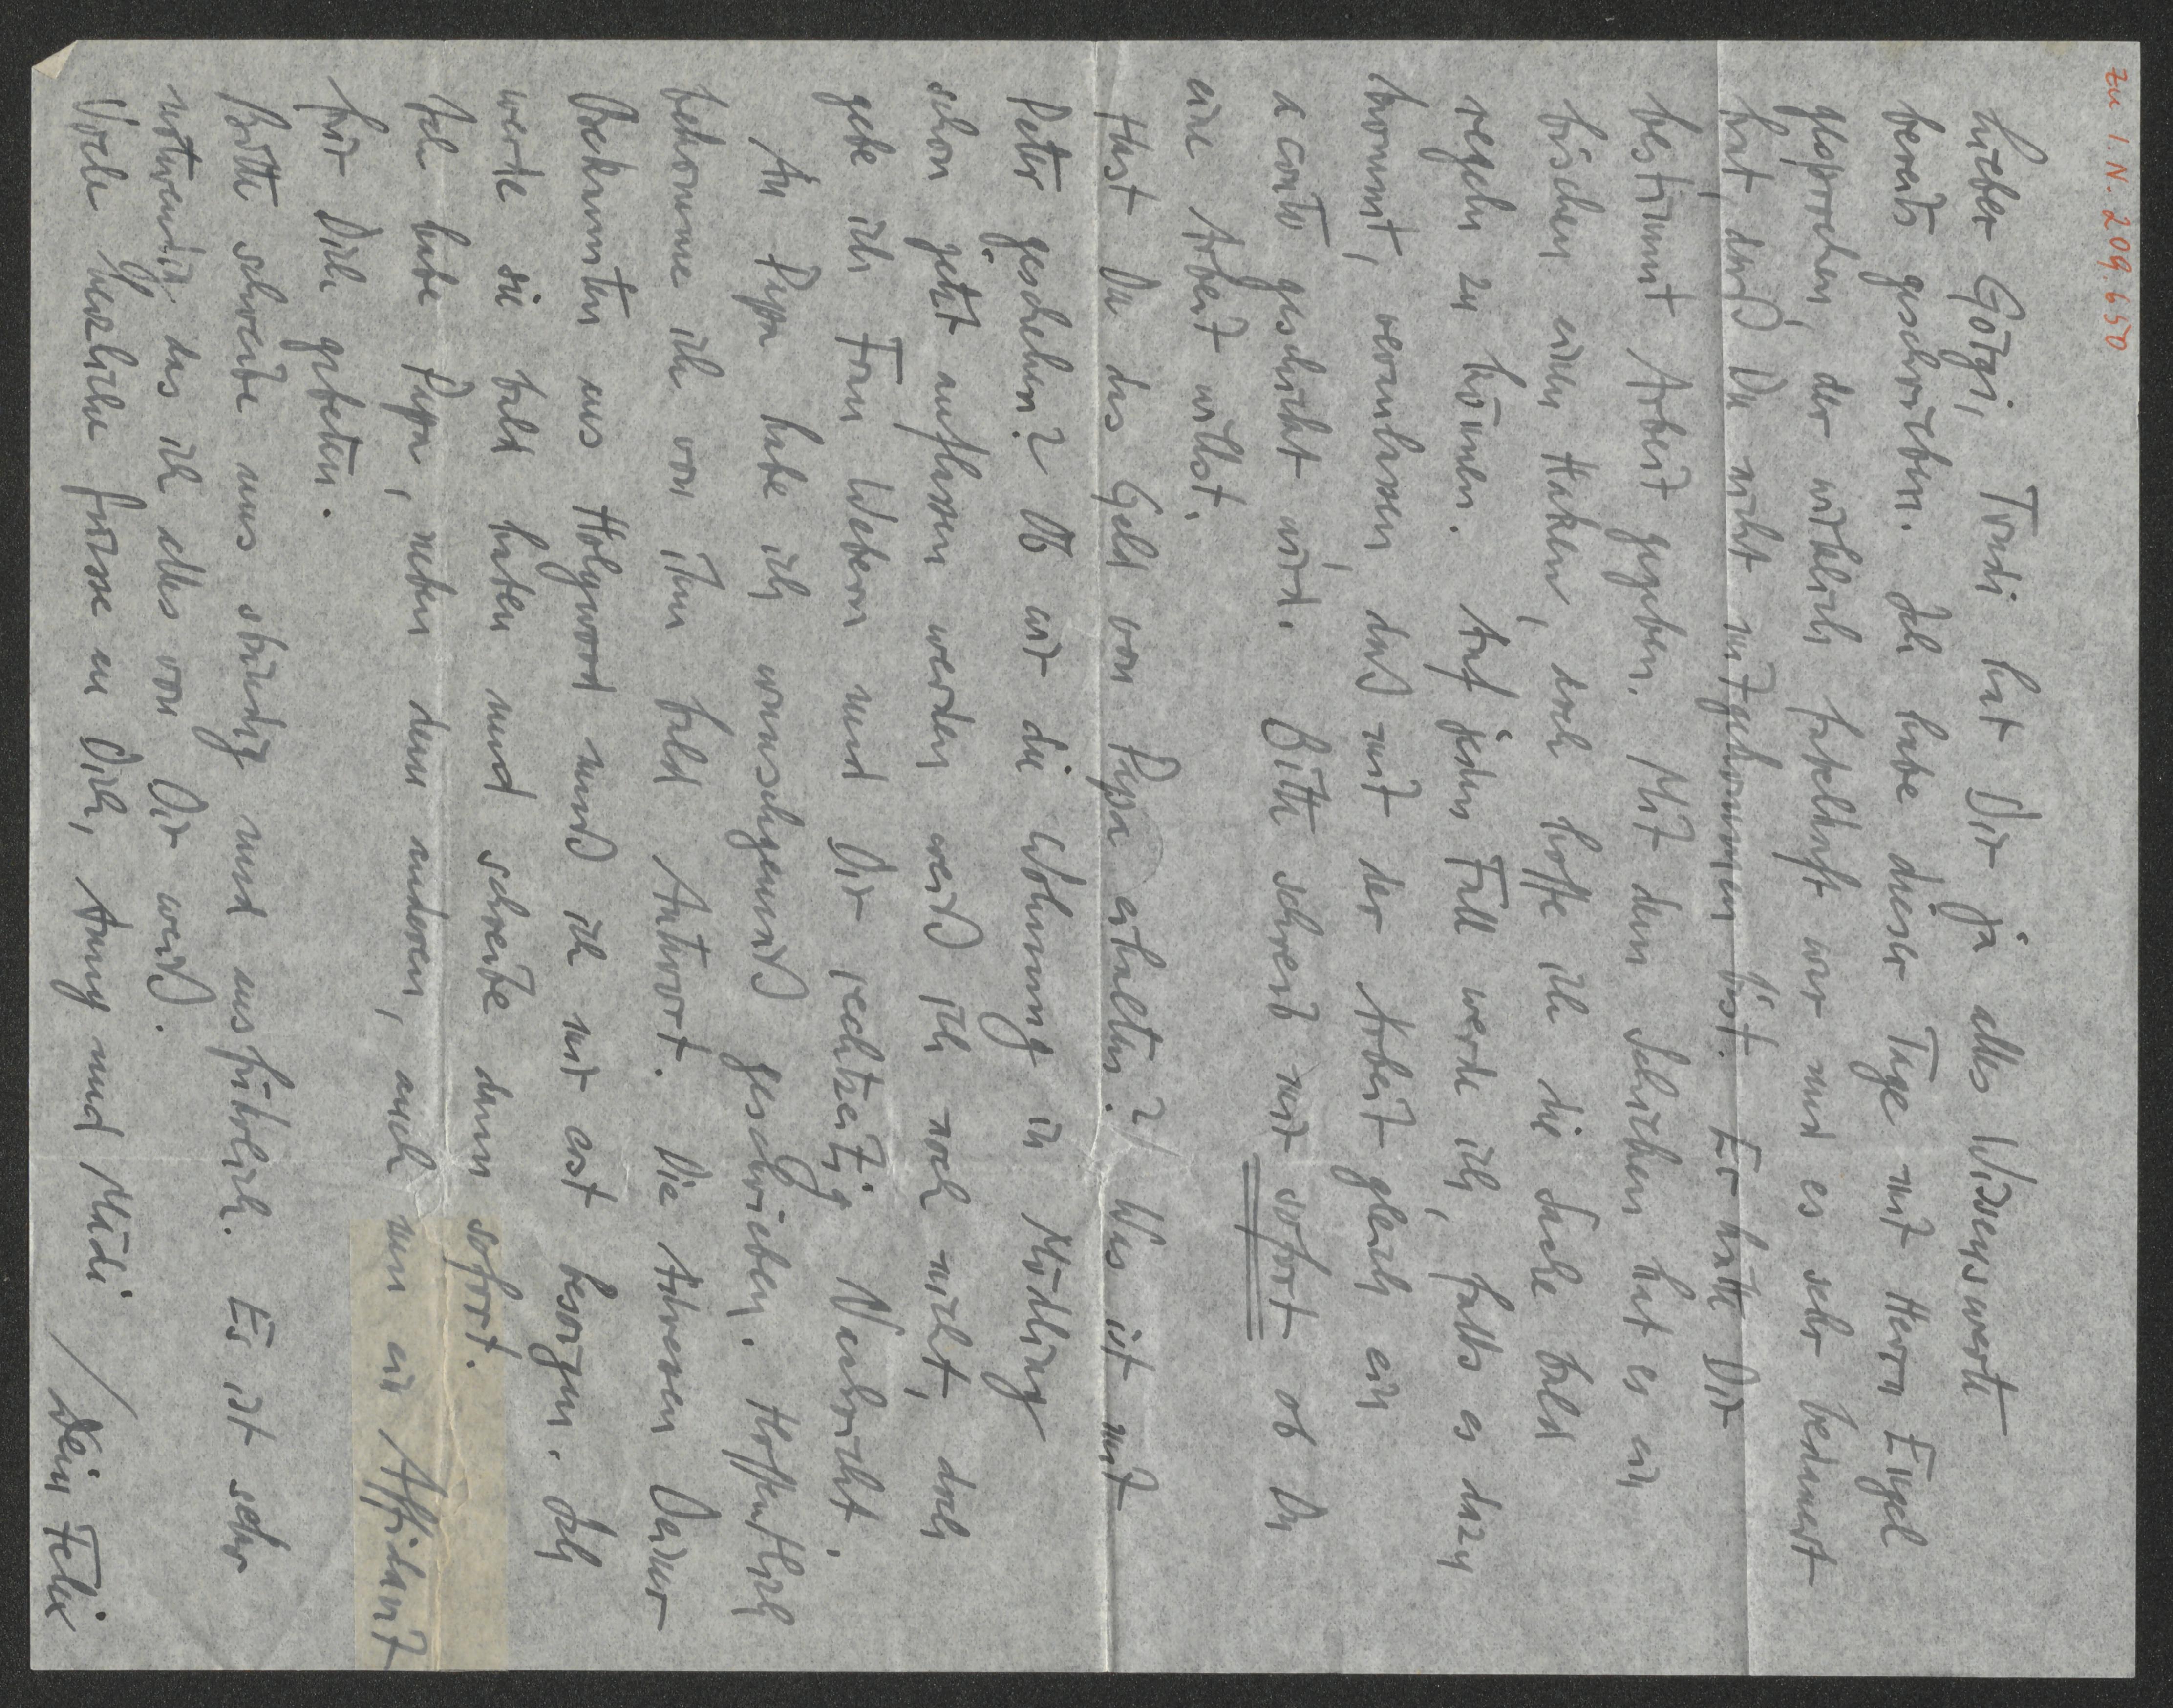 zu I.N. 209.650
Lieber Götzi, Trudi hat Dir ja alles Wissenswerte
bereits geschrieben. Ich habe dieser Tage mit Herrn Engel
gesprochen, der wirklich fabelhaft war und es sehr bedauert
hat, daß Du nicht mitgekommen bist. Er hätte Dir
bestimmt Arbeit gegeben. Mit dem Schicken hat es ein
bischen einen Haken, doch hoffe ich die Sache bald
regeln zu können. Auf jeden Fall werde ich, falls es dazu
kommt, veranlassen, daß mit der Arbeit gleich ein
aconto geschickt wird. Bitte schreib mir sofort ob Du
eine Arbeit willst.
Hast Du das Geld von Papa erhalten? Was ist mit
Peter geschehen? Ob wir die Wohnung in Mödling
schon jetzt auflassen werden weiß ich noch nicht, doch
gebe ich Frau Webern und Dir rechtzeitig Nachricht.
An Papa habe ich wunschgemäß geschrieben. Hoffentlich
bekomme ich von ihm bald Antwort. Die Adressen Deiner
Bekannten aus Hollywood muß ich mir erst besorgen. Ich
werde sie bald haben und schreibe dann sofort.
Ich habe Papa, neben dem anderen, auch um ein Affidavit
für Dich gebeten.
Bitte schreibe uns ständig und ausführlich. Es ist sehr
notwendig das ich alles von Dir weiß.
Viele herzliche Grüsse an Dich, Anny und Mädi / Dein Felix